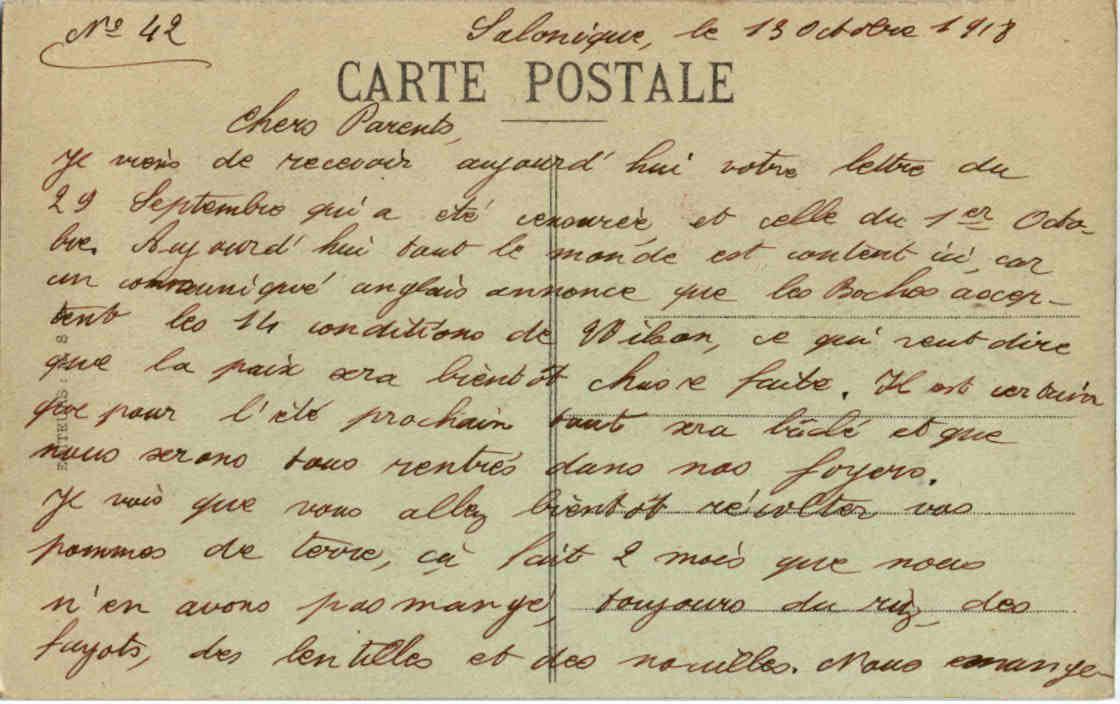 Nº 42
Salonique, le 13 Octobre 1918
CARTE POSTALE
Chers Parents,
Je viens de recevoir aujourd'hui votre lettre du
29 Septembre qui a été censurée, et celle du 1er Octo-
bre. Aujourd'hui tout le monde est content ici, car
un communiqué anglais annonce que les Boches accep-
tent les 14 conditions de Wilson, ce qui veut dire
que la paix sera bientôt chose faite. Il est certain
que pour l'été prochain tout sera bâclé et que
nous serons tous rentrés dans nos foyers.
Je vois que vous allez bientôt récolter vos
pommes de terre, çà fait 2 mois que nous
n'en avons pas mangé, toujours du riz, des
fayots, des lentilles et des nouilles. Nous mange-